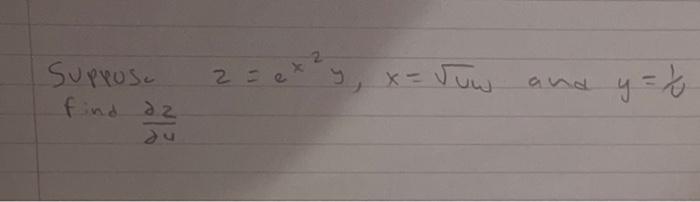 Suppose z = e^{x^2} y, x = √uw and y = 1/v
find ∂z/∂u